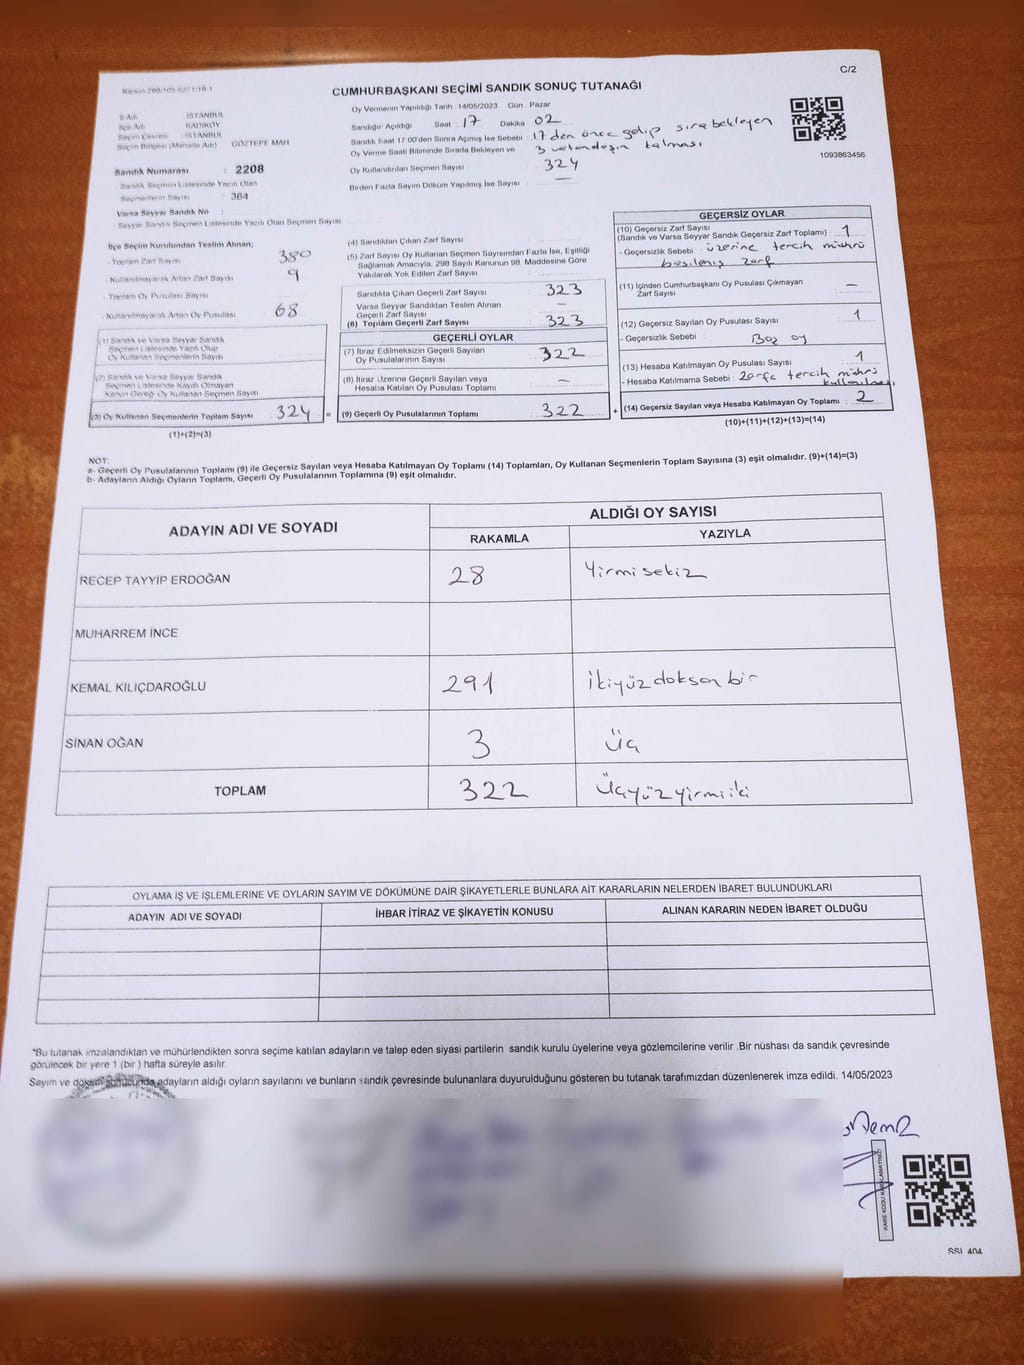 C/2
Kanun 298/105 6271/18.1
CUMHURBAŞKANI SEÇİMİ SANDIK SONUÇ TUTANAĞI
İl Adı : İSTANBUL
İlçe Adı : KADIKÖY
Seçim Çevresi : İSTANBUL
Seçim Bölgesi (Mahalle Adı) : GÖZTEPE MAH
Sandık Numarası : 2208
Sandık Seçmen Listesinde Yazılı Olan
Seçmenlerin Sayısı : 364
Varsa Seyyar Sandık No :
Seyyar Sandık Seçmen Listesinde Yazılı Olan Seçmen Sayısı
Oy Vermenin Yapıldığı Tarih : 14/05/2023 Gün : Pazar
Sandığın Açıldığı Saat : 17 Dakika : 02
Sandık Saat 17.00'den Sonra Açılmış İse Sebebi : 17 den önce gelip sıra bekleyen
Oy Verme Saati Bitiminde Sırada Bekleyen ve 3 vatandaşın kalması
Oy Kullandırılan Seçmen Sayısı : 324
Birden Fazla Sayım Döküm Yapılmış İse Sayısı : —
1093863456
İlçe Seçim Kurulundan Teslim Alınan;
- Toplam Zarf Sayısı : 380
- Kullanılmayarak Artan Zarf Sayısı : 9
- Toplam Oy Pusulası Sayısı :
- Kullanılmayarak Artan Oy Pusulası : 68
(1) Sandık ve Varsa Seyyar Sandık
Seçmen Listesinde Yazılı Olup
Oy Kullanan Seçmenlerin Sayısı
(2) Sandık ve Varsa Seyyar Sandık
Seçmen Listesinde Kayıtlı Olmayan
Kanun Gereği Oy Kullanan Seçmen Sayısı
(3) Oy Kullanan Seçmenlerin Toplam Sayısı : 324 =
(1)+(2)=(3)
(4) Sandıktan Çıkan Zarf Sayısı :
(5) Zarf Sayısı Oy Kullanan Seçmen Sayısından Fazla İse, Eşitliği
Sağlamak Amacıyla, 298 Sayılı Kanunun 98. Maddesine Göre
Yakılarak Yok Edilen Zarf Sayısı :
Sandıkta Çıkan Geçerli Zarf Sayısı : 323
Varsa Seyyar Sandıktan Teslim Alınan
Geçerli Zarf Sayısı : —
(6) Toplam Geçerli Zarf Sayısı : 323
GEÇERLİ OYLAR
(7) İtiraz Edilmeksizin Geçerli Sayılan
Oy Pusulalarının Sayısı : 322
(8) İtiraz Üzerine Geçerli Sayılan veya
Hesaba Katılan Oy Pusulası Toplamı : —
(9) Geçerli Oy Pusulalarının Toplamı : 322 +
GEÇERSİZ OYLAR
(10) Geçersiz Zarf Sayısı
(Sandık ve Varsa Seyyar Sandık Geçersiz Zarf Toplamı) : 1
- Geçersizlik Sebebi : üzerine tercih mührü
basılmış zarf
(11) İçinden Cumhurbaşkanı Oy Pusulası Çıkmayan
Zarf Sayısı : —
(12) Geçersiz Sayılan Oy Pusulası Sayısı : 1
- Geçersizlik Sebebi : Boş oy
(13) Hesaba Katılmayan Oy Pusulası Sayısı : 1
- Hesaba Katılmama Sebebi : Zarfa tercih mührü
kullanılması
(14) Geçersiz Sayılan veya Hesaba Katılmayan Oy Toplamı : 2
(10)+(11)+(12)+(13)=(14)
NOT:
a- Geçerli Oy Pusulalarının Toplamı (9) ile Geçersiz Sayılan veya Hesaba Katılmayan Oy Toplamı (14) Toplamları, Oy Kullanan Seçmenlerin Toplam Sayısına (3) eşit olmalıdır. (9)+(14)=(3)
b- Adayların Aldığı Oyların Toplamı, Geçerli Oy Pusulalarının Toplamına (9) eşit olmalıdır.
ADAYIN ADI VE SOYADI
ALDIĞI OY SAYISI
RAKAMLA YAZIYLA
RECEP TAYYİP ERDOĞAN 28 Yirmisekiz
MUHARREM İNCE
KEMAL KILIÇDAROĞLU 291 İkiyüzdoksanbir
SİNAN OĞAN 3 Üç
TOPLAM 322 Üçyüzyirmiiki
OYLAMA İŞ VE İŞLEMLERİNE VE OYLARIN SAYIM VE DÖKÜMÜNE DAİR ŞİKAYETLERLE BUNLARA AİT KARARLARIN NELERDEN İBARET BULUNDUKLARI
ADAYIN ADI VE SOYADI İHBAR İTİRAZ VE ŞİKAYETİN KONUSU ALINAN KARARIN NEDEN İBARET OLDUĞU
*Bu tutanak imzalandıktan ve mühürlendikten sonra seçime katılan adayların ve talep eden siyasi partilerin sandık kurulu üyelerine veya gözlemcilerine verilir .Bir nüshası da sandık çevresinde
görülecek bir yere 1 (bir ) hafta süreyle asılır.
Sayım ve döküm sonucunda adayların aldığı oyların sayılarını ve bunların sandık çevresinde bulunanlara duyurulduğunu gösteren bu tutanak tarafımızdan düzenlenerek imza edildi. 14/05/2023
KARE KODU KARALAMAYINIZ!
SSL 404